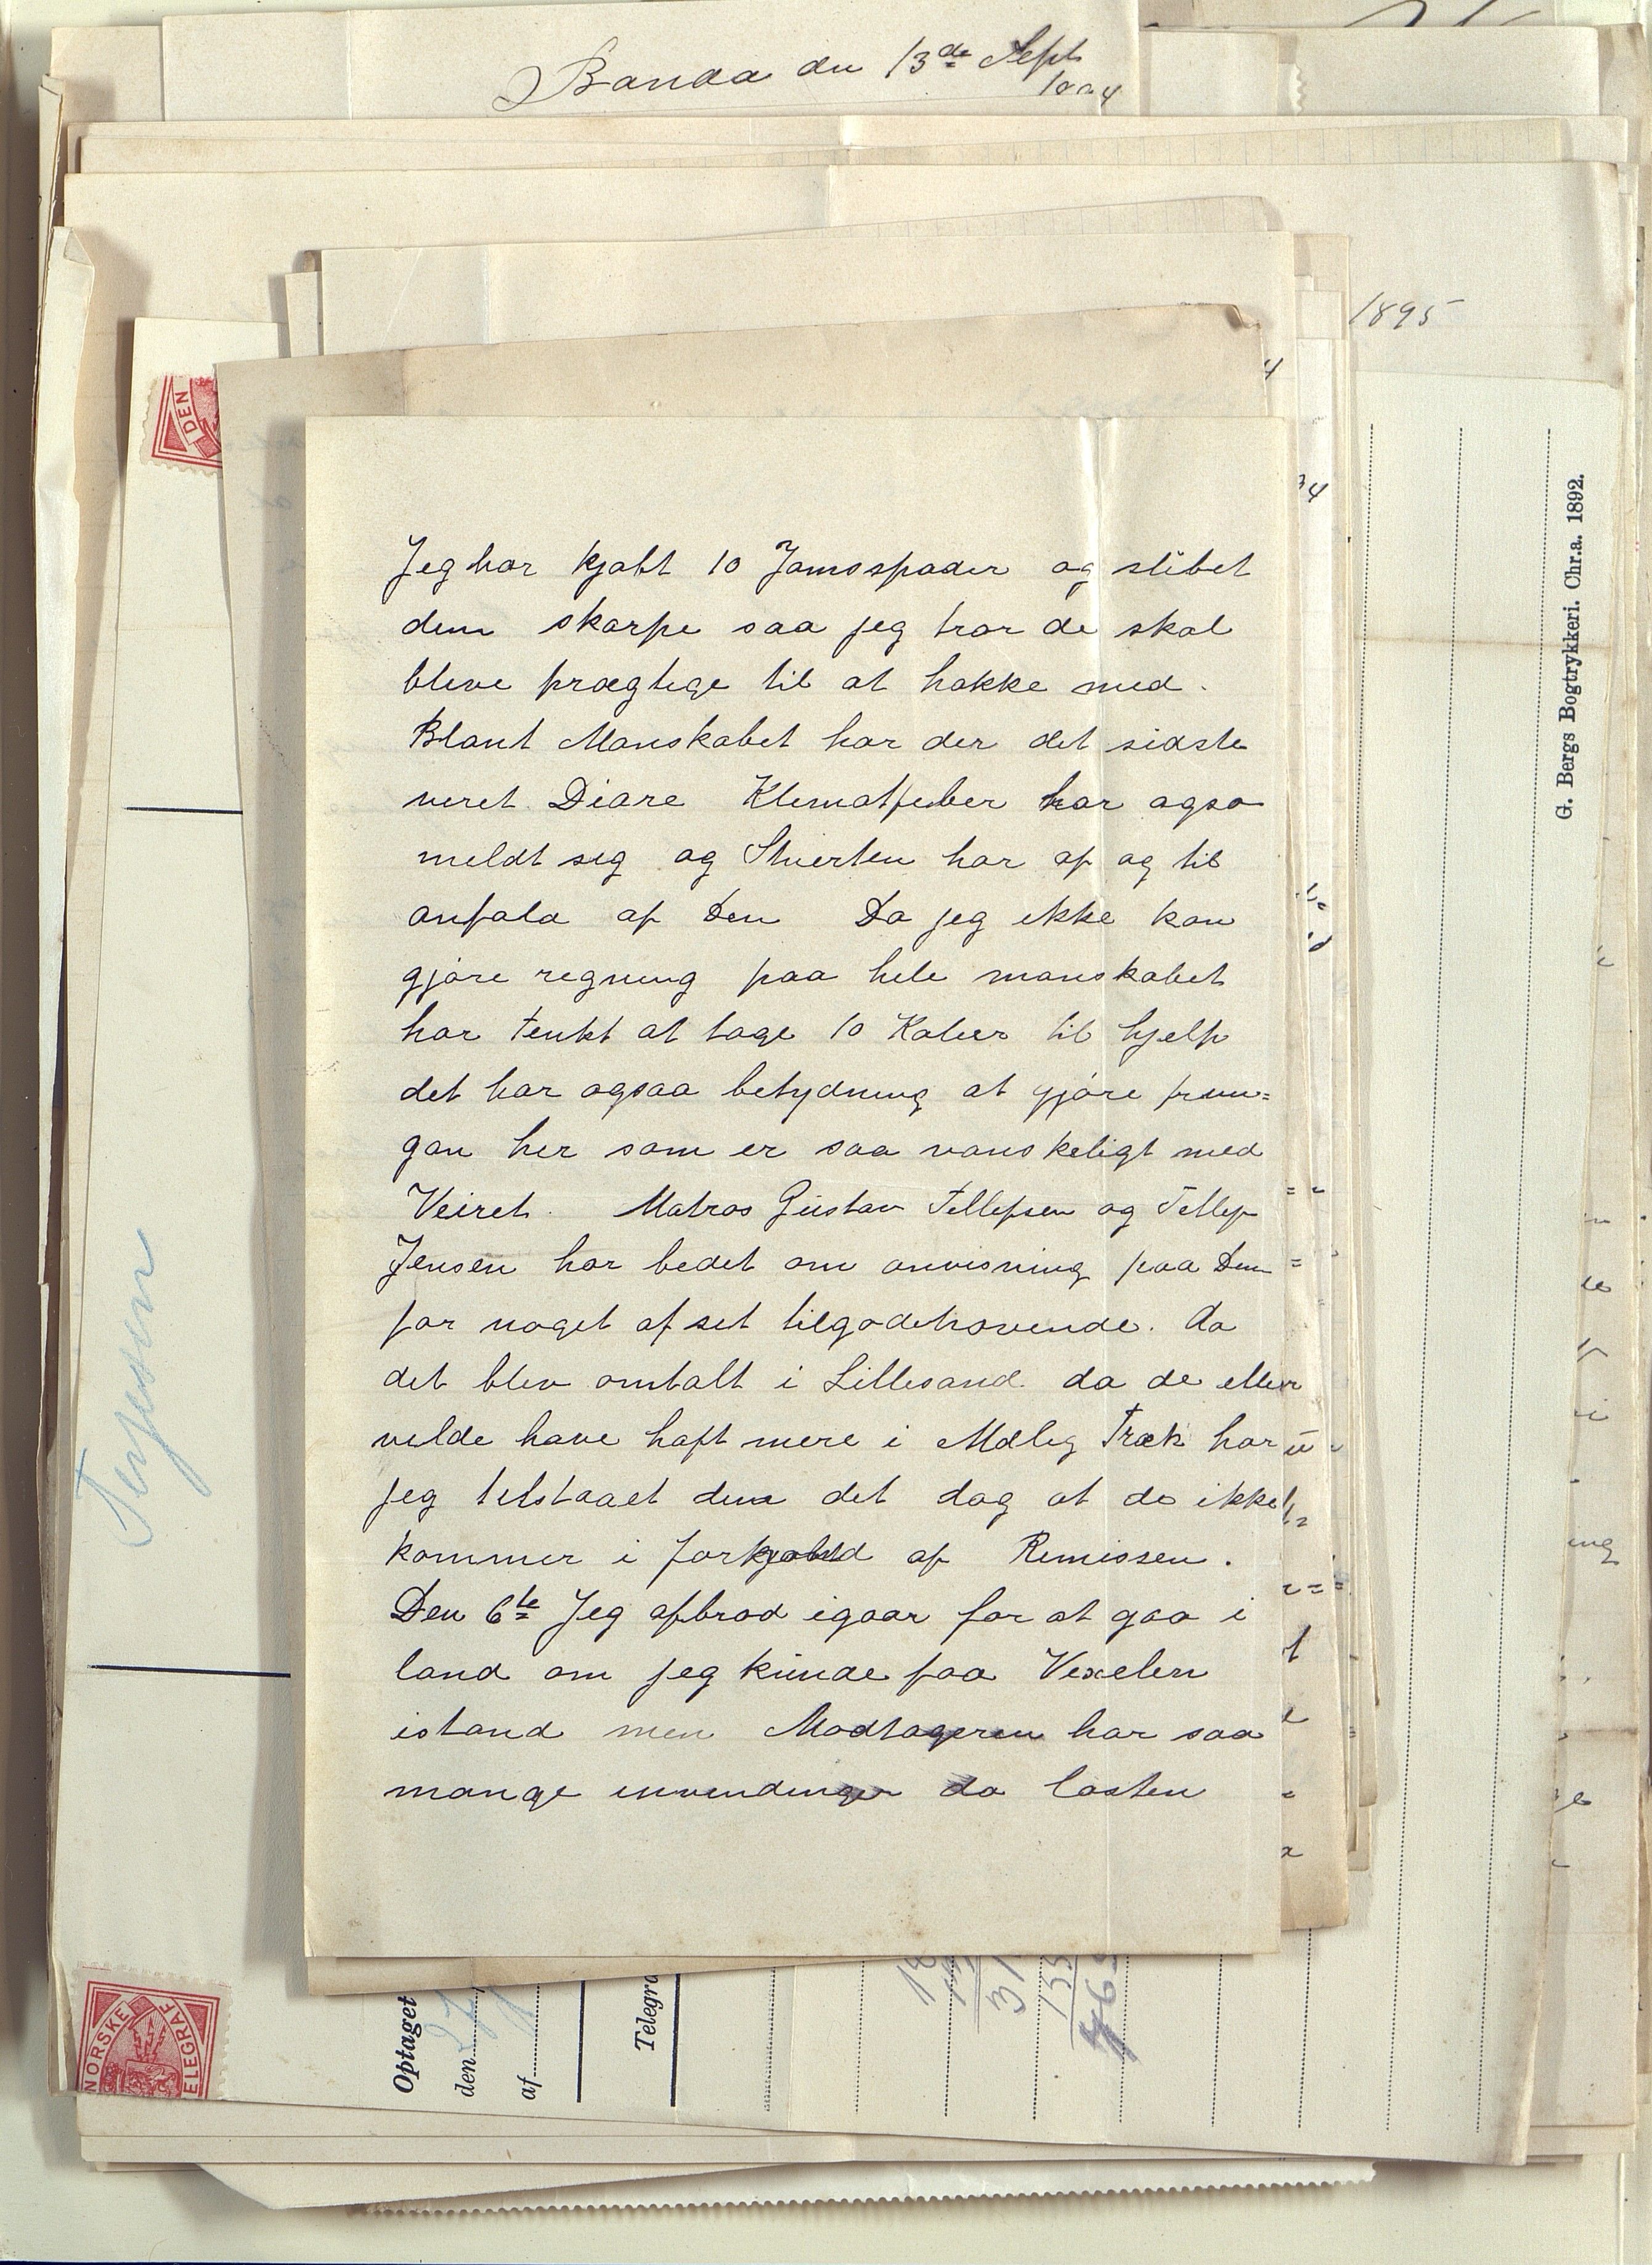 Banda den 13de Sept
1895
Jeg har kjøbt 10 Jamsspader og slibet
dem skarpe saa jeg tror de skal
blive prægtige til at hakke med.
Blant Manskabet har der det sidste
veret Diare Klimatfeber har ogsa
meldt sig og Stuerten har af og til
anfald af den Da jeg ikke kan
gjøre regning paa hele manskabet
har tenkt at tage 10 Kolier til hjelp
det har ogsaa betydning at gjøre frem=
gan her som er saa vanskeligt med
Veiret. Matros Gustav Tellefsen og Tellef
Jensen har bedet om anvisning paa Dem
for noget af set tilgodehavende. da
det blev omtalt i Lillesand da de eller
vilde have haft mere i Mdlig Træk har
jeg tilstaaet dem det dog at de ikke
kommer i forkjøbld af Remissen.
Den 6te Jeg afbrød igaar for at gaa i
land om jeg kunde faa Vexelen
istand men Modtageren har saa
mange invendinger da lasten
Terjesen
G. Bergs Bogtrykkeri. Chr.a. 1892.
DEN
NORSKE
TELEGRAF
Optaget
den
af
Telegra